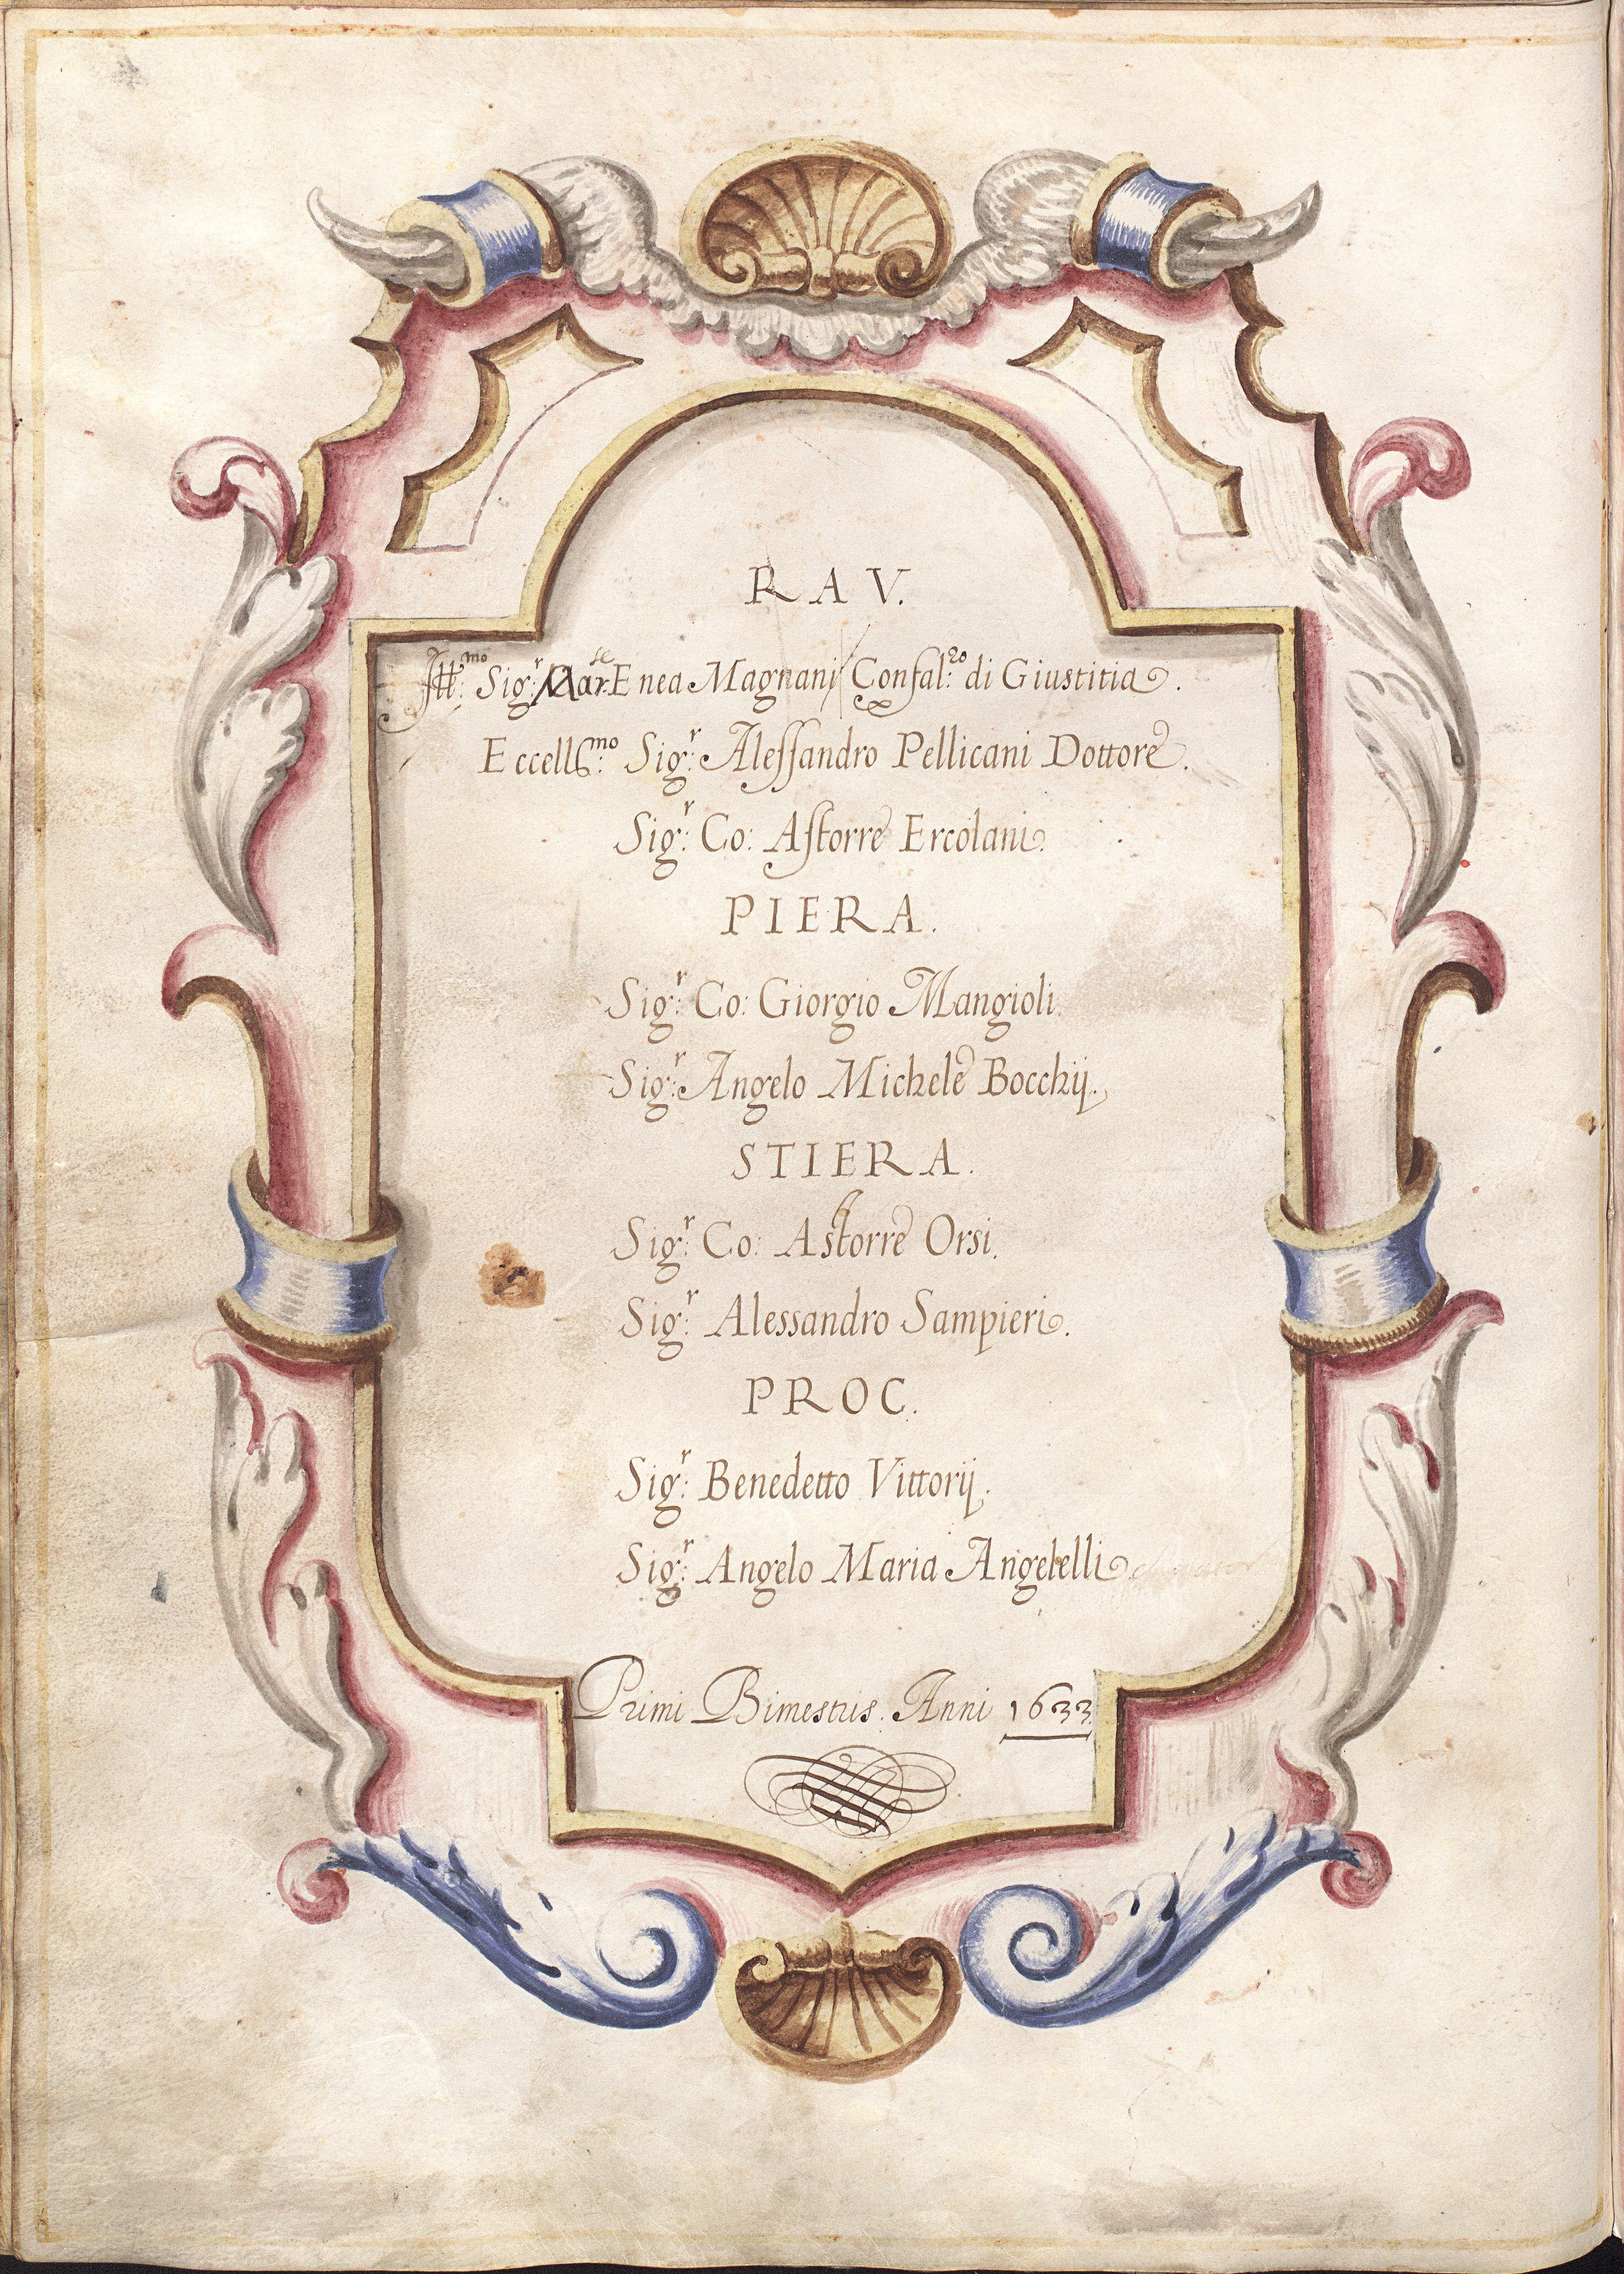 RAV.
Ill:mo Sig:r Mar:se Enea Magnani Confal:ro di Giustitia.
Eccell:mo Sig:r Alessandro Pellicani Dottore.
Sig:r Co: Astorre Ercolani.
PIERA.
Sig:r Co: Giorgio Mangioli.
Sig:r Angelo Michele Bocchij.
STIERA.
Sig:r Co: Astorre Orsi.
Sig:r Alessandro Sampieri.
PROC.
Sig:r Benedetto Vittorij.
Sig:r Angelo Maria Angelelli
Primi Bimestris. Anni 1633.